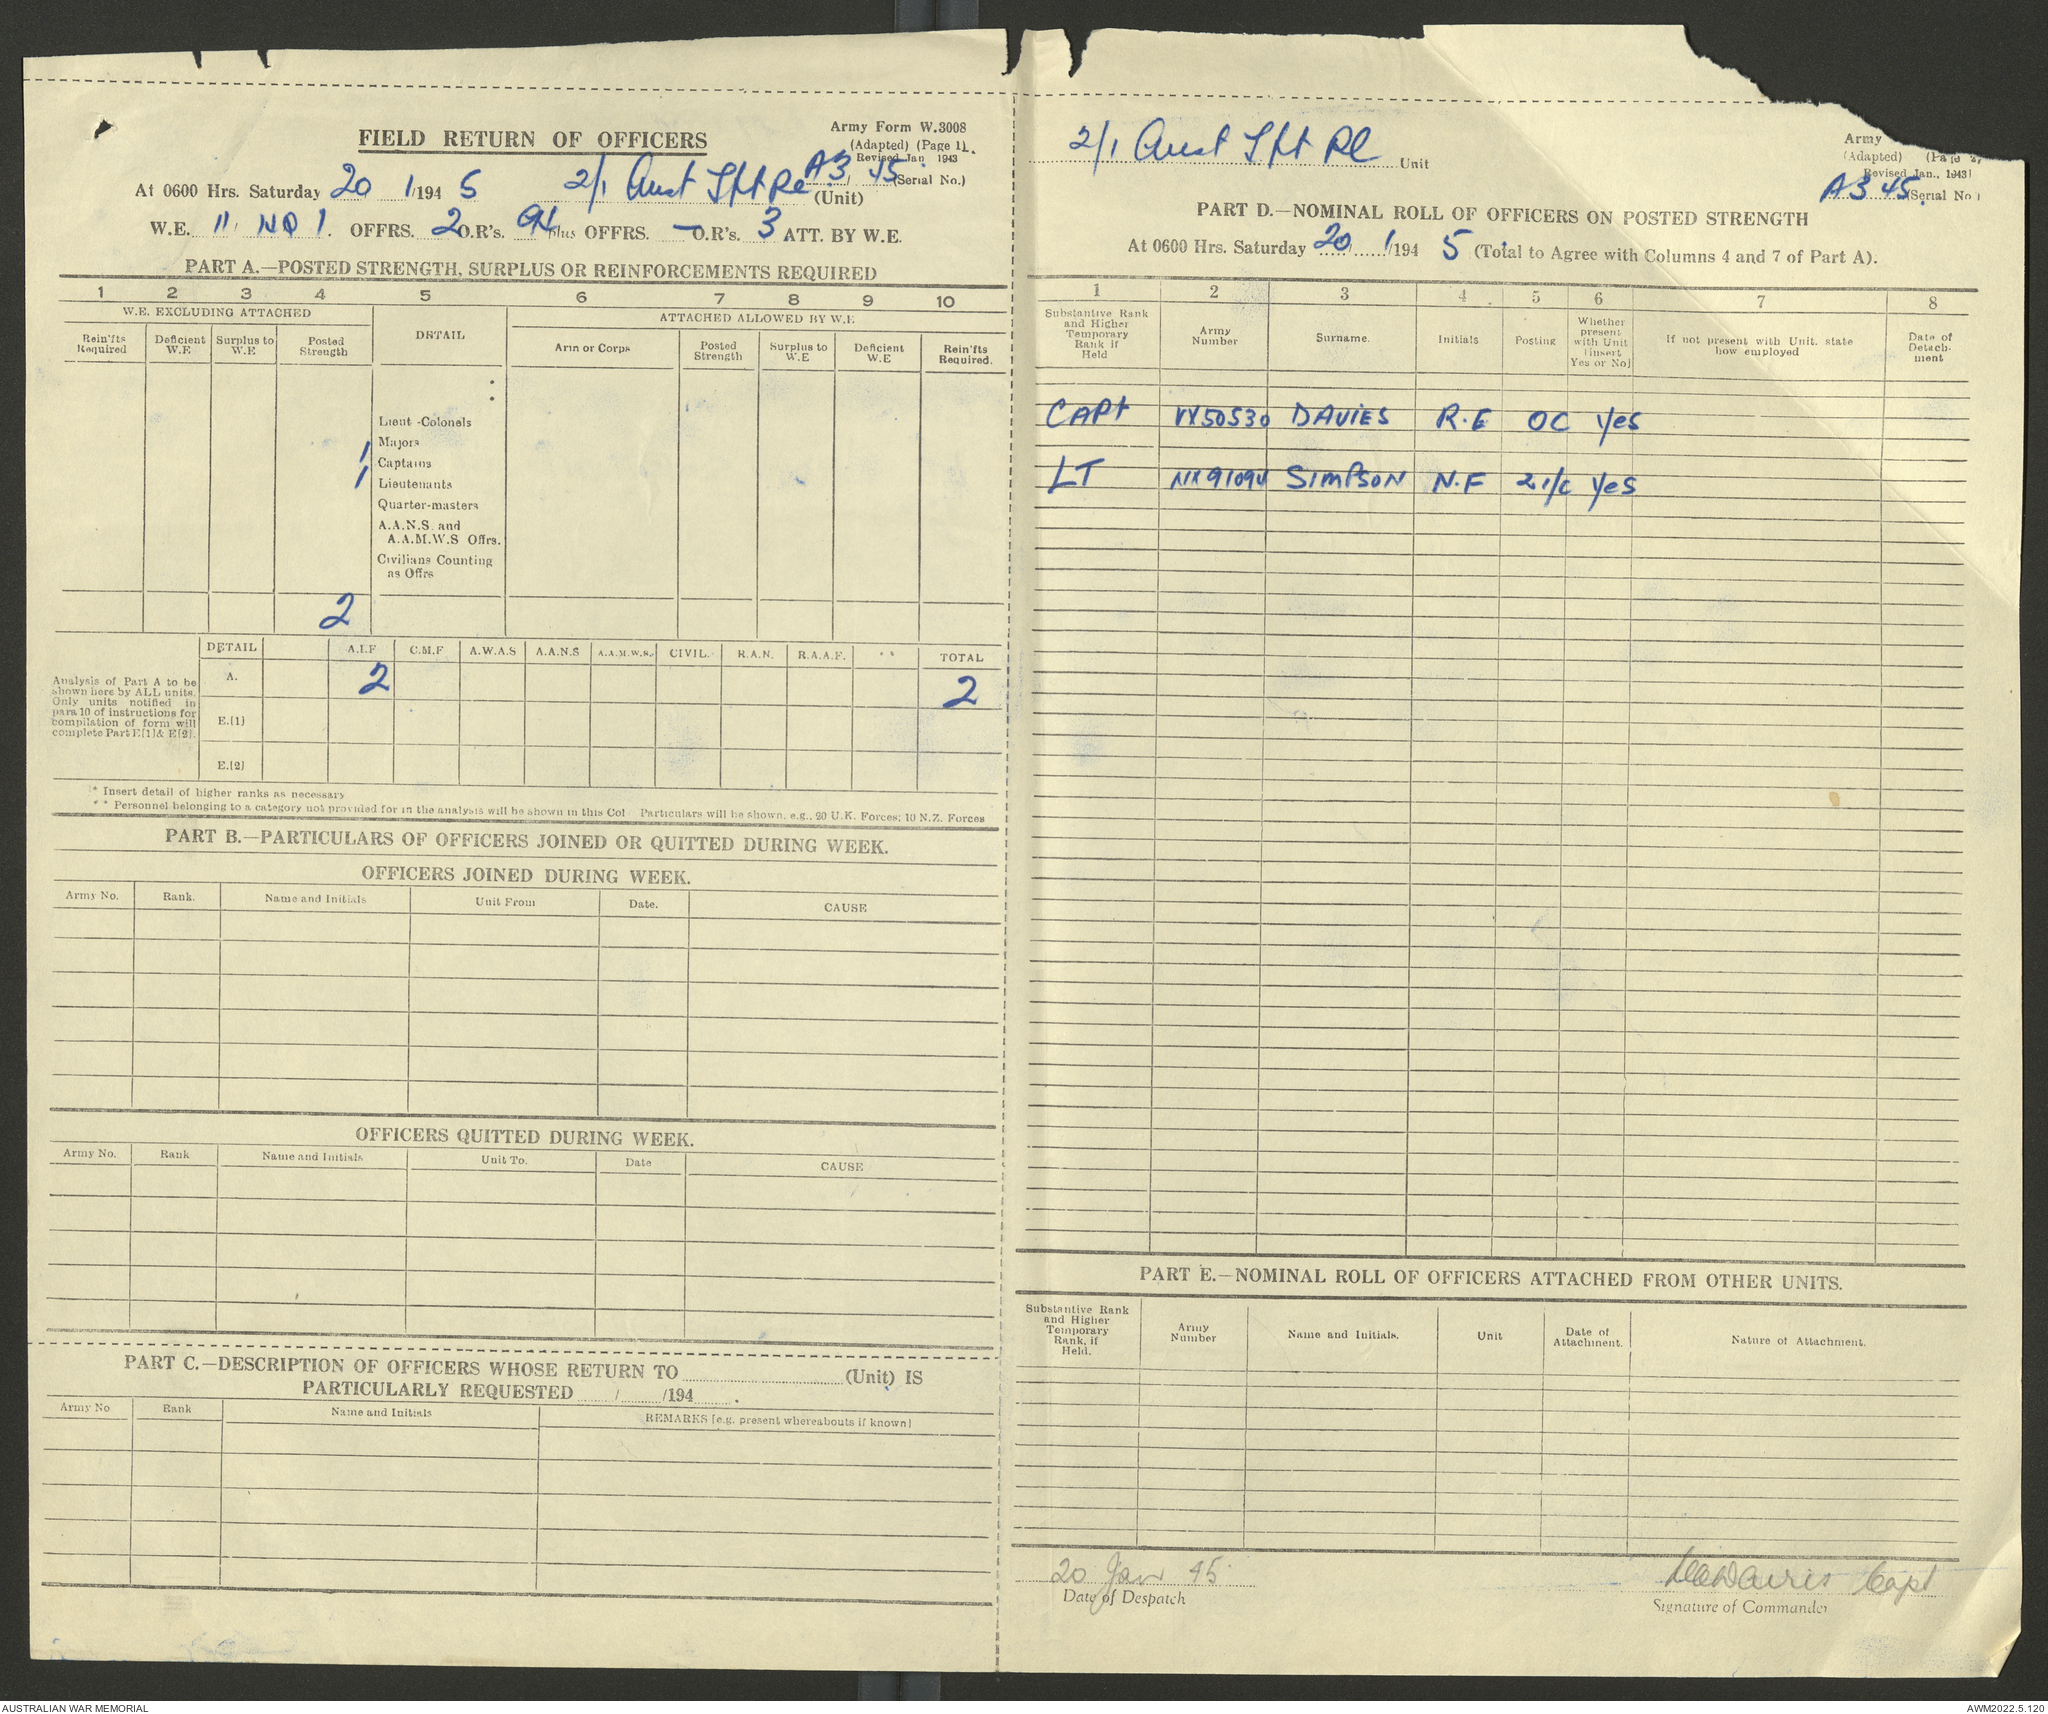 FIELD RETURN OF OFFICERS
Army Form W.3008
(Adapted) (Page 1).
Revised Jan 1943
At 0600 Hrs. Saturday 20/1/1945 2/1 Aust Lt Pl (Unit)
A3/45 (Serial No.)
W.E. 11 NO 1. OFFRS. 2 O.R's. 94 plus OFFRS. — O.R's. 3 ATT. BY W.E.
PART A.—POSTED STRENGTH, SURPLUS OR REINFORCEMENTS REQUIRED
1 2 3 4 5 6 7 8 9 10
W.E. EXCLUDING ATTACHED DETAIL ATTACHED ALLOWED BY W.E.
Rein'fts Required Deficient W.E Surplus to W.E Posted Strength Arm or Corps Posted Strength Surplus to W.E Deficient W.E Rein'fts Required.
Lieut-Colonels
Majors
1 Captains
1 Lieutenants
Quarter-masters
A.A.N.S. and
A.A.M.W.S Offrs.
Civilians Counting
as Offrs
2
DETAIL A.I.F C.M.F A.W.A.S A.A.N.S A.A.M.W.S. CIVIL. R.A.N. R.A.A.F. ** TOTAL
A. 2 2
E.(1)
E.(2)
Analysis of Part A to be
shown here by ALL units.
Only units notified in
para 10 of instructions for
compilation of form will
complete Part E[1] & E[2].
* Insert detail of higher ranks as necessary
** Personnel belonging to a category not provided for in the analysis will be shown in this Col Particulars will be shown, e.g., 20 U.K. Forces; 10 N.Z. Forces
PART B.—PARTICULARS OF OFFICERS JOINED OR QUITTED DURING WEEK.
OFFICERS JOINED DURING WEEK.
Army No. Rank. Name and Initials Unit From Date. CAUSE
OFFICERS QUITTED DURING WEEK.
Army No. Rank Name and Initials Unit To. Date CAUSE
PART C.—DESCRIPTION OF OFFICERS WHOSE RETURN TO (Unit) IS
PARTICULARLY REQUESTED / /194 .
Army No Rank Name and Initials REMARKS [e.g. present whereabouts if known]
2/1 Aust Lt Pl Unit
Army
(Adapted) (Page 2)
Revised Jan., 1943
A3 45. (Serial No)
PART D.—NOMINAL ROLL OF OFFICERS ON POSTED STRENGTH
At 0600 Hrs. Saturday 20/1/1945 (Total to Agree with Columns 4 and 7 of Part A).
1 2 3 4 5 6 7 8
Substantive Rank and Higher Temporary Rank if Held Army Number Surname. Initials Posting Whether present with Unit [insert Yes or No] If not present with Unit. state how employed Date of Detach-ment
CAPt VX50530 DAVIES R.E OC Yes
LT NX91094 SIMPSON N.F 2 i/c Yes
PART E.—NOMINAL ROLL OF OFFICERS ATTACHED FROM OTHER UNITS.
Substantive Rank and Higher Temporary Rank, if Held. Army Number Name and Initials. Unit Date of Attachment. Nature of Attachment.
20 Jan 45
Date of Despatch
Davies Capt
Signature of Commander
AUSTRALIAN WAR MEMORIAL
AWM2022.5.120